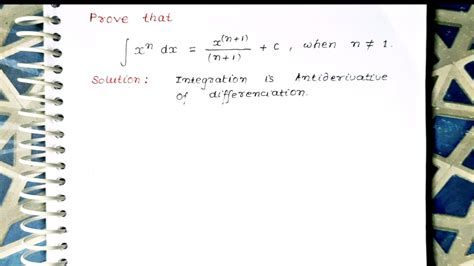 Prove that
∫ xⁿ dx = x^(n+1) / (n+1) + c , when n ≠ 1.
Solution: Integration is Antiderivative
of differenciation.